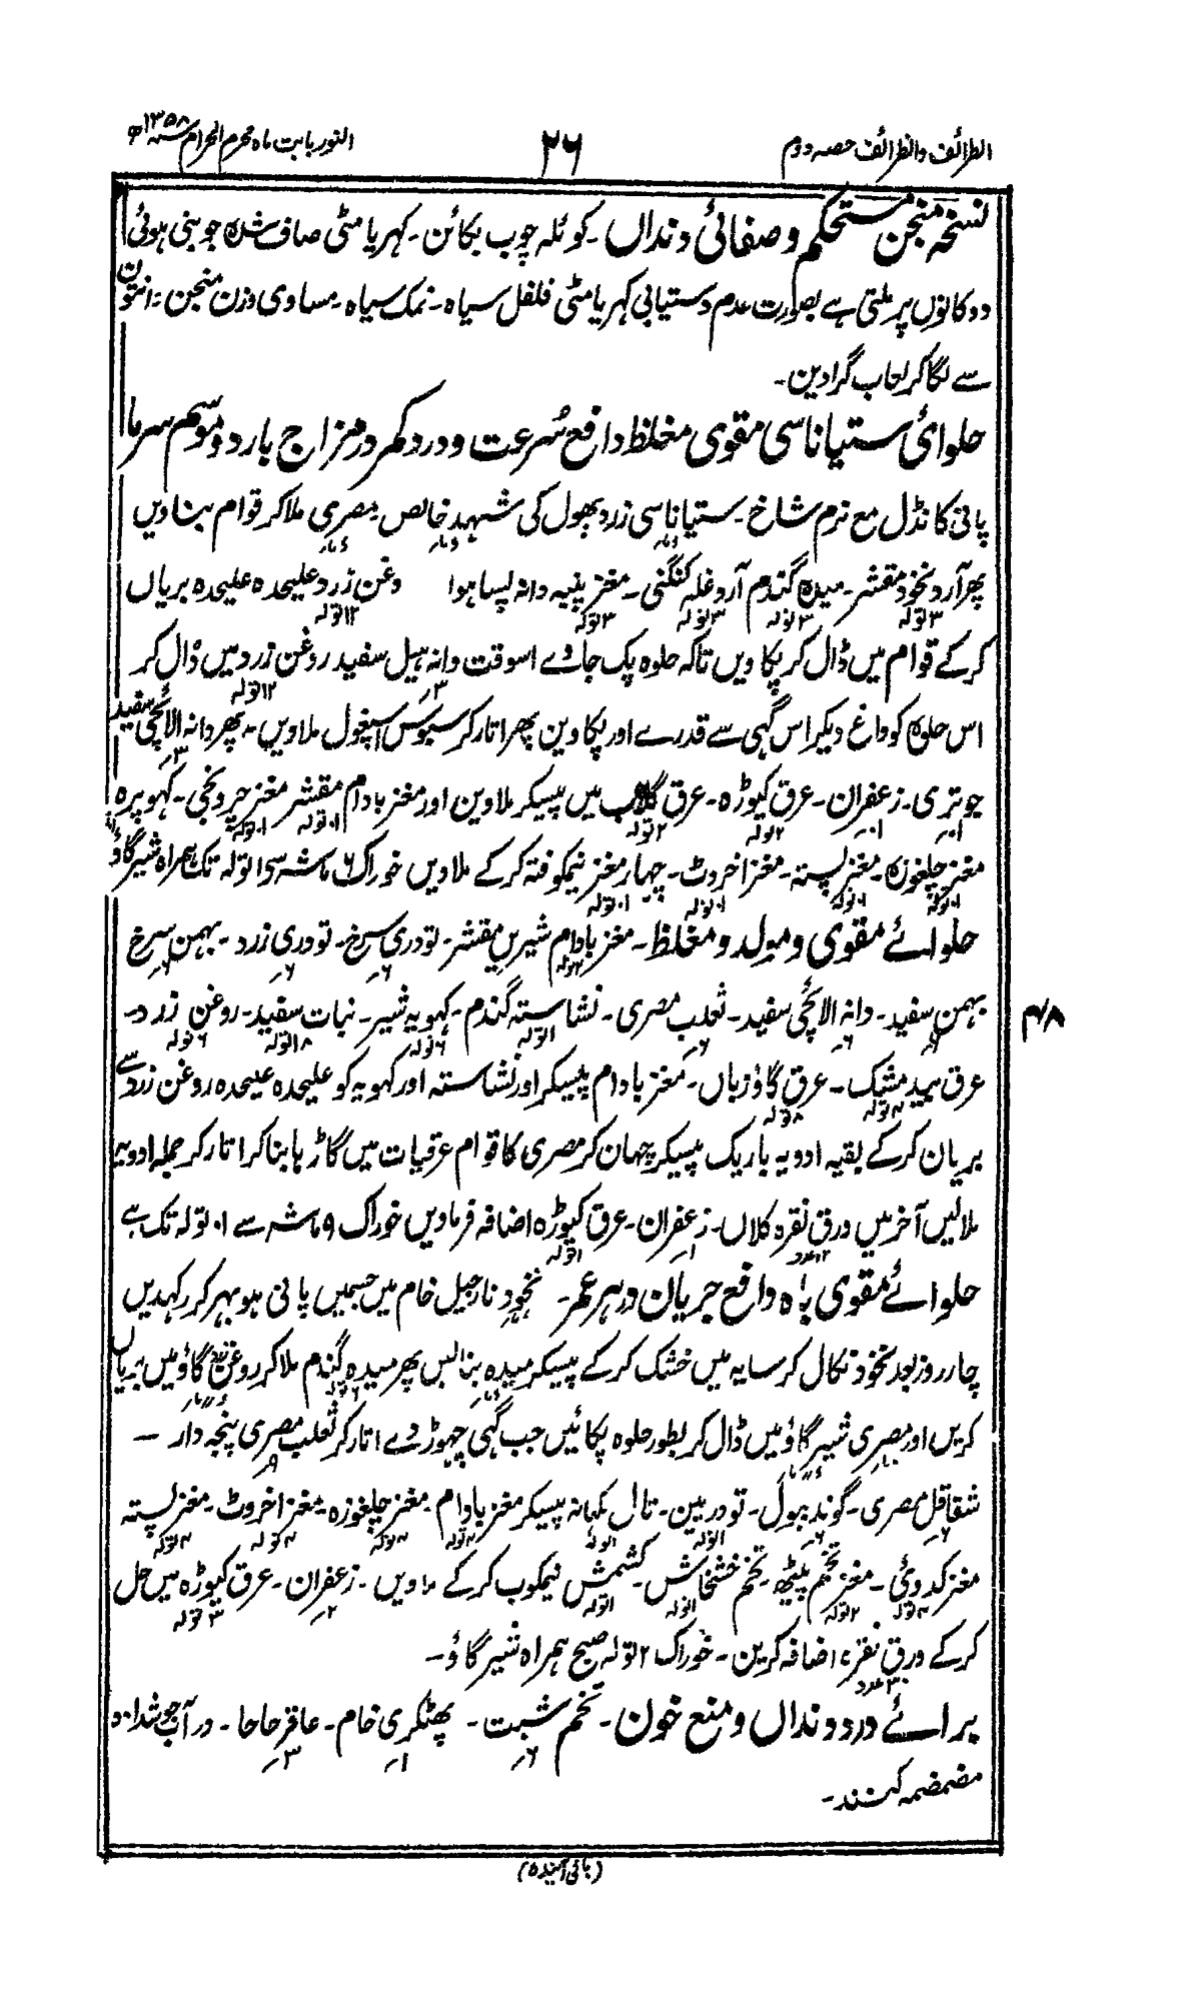 الطرائف والظرائف حصہ دوم
۲۶
النور بابت ماہ محرم الحرام ۱۳۵۸ھ
نسخہ منجن مستحکم و صفائی دنداں ۔ کوئلہ چوب بکائن ۔ کہریا مٹی صاف شدہ جو بنی ہوئی
دوکانوں پر ملتی ہے بصورت عدم دستیابی کہریا مٹی فلفل سیاہ ۔ نمک سیاہ ۔ مساوی وزن منجن : انتون
سے لگا کر لعاب گرادین ۔
حلوائی ستیاناسی مقوی مغلظ دافع سُرعت و درد کمر در مزاج بارد و موسم سرما
پانی کانڈل مع نرم شاخ ۔ ستیاناسی زرد پھول کی شہد خالص مصری ملا کر قوام بنادیں
پھر آرد نخود مقشر ۔ میدہ گندم آرد غلہ کنگنی ۔ مغز پنبہ دانہ پسا ہوا وغن زرد علیحدہ علیحدہ بریاں
۳تولہ ۳تولہ ۳تولہ ۳تولہ ۱۲تولہ
کرکے قوام میں ڈال کر پکا ویں تاکہ حلوہ پک جاوے اسوقت دانہ ہیل سفید روغن زرد میں ڈال کر
۳ ۱۲تولہ
اس حلوہ کو داغ دیکر اس گہی سے قدرے اور پکا وین پھر اتار کر سبوس اسپغول ملاویں ۔ پھر دانہ الائچی سفید
۳
جوتری ۔ زعفران ۔ عرق کیوڑہ ۔ عرق گلاب میں پیسکر ملاوین اور مغز بادام مقشر مغز چرونجی ۔ کہوپرہ
۱ ۱ ۲تولہ ۲تولہ ۱۰تولہ ۱۰تولہ
مغز چلغوزہ ۔ مغز پستہ ۔ مغز اخروٹ ۔ چہار مغز نیمکوفتہ کرکے ملا ویں خوراک ۶ ماشہ سے ۱ تولہ تک ہمراہ شیر گاؤ
۱۰تولہ ۱۰تولہ ۱۰تولہ ۱۰تولہ
حلوائے مقوی و مولد و مغلظ ۔ مغز بادام شیریں مقشر ۔ تودری سرخ ۔ تودری زرد ۔ بہمن سرخ
۶ ۶ ۶
بہمن سفید ۔ دانہ الائچی سفید ۔ ثعلب مصری ۔ نشاستہ گندم ۔ کہویہ شیر ۔ نبات سفید ۔ روغن زرد ۔
۶ ۶ ۶ ۱تولہ ۶تولہ ۱۸تولہ ۶تولہ
۴/۸
عرق بید مشک ۔ عرق گاؤزباں ۔ مغز بادام پیسکر اور نشاستہ اور کہویہ کو علیحدہ علیحدہ روغن زرد سے
۴تولہ ۸تولہ
بریان کرکے بقیہ ادویہ باریک پیسکر چہان کر مصری کا قوام عرقیات میں گاڑہا بنا کر اتار کر جملہ ادویہ
ملالیں آخر میں ورق نقرہ کلاں ۔ زعفران ۔ عرق کیوڑہ اضافہ فرماویں خوراک ۹ ماشہ سے ۱۰ تولہ تک ہے
۱۲عدد ۱ ۱تولہ
حلوائے مقوی باہ دافع جریان در ہر عمر ۔ نخود نارجیل خام میں جسمیں پانی ہو بہر کر رکہدیں
چار روز بعد نخود نکال کر سایہ میں خشک کرکے پیسکر میدہ بنالیں پھر میدہ گندم ملا کر روغن زرد گاؤ میں بریاں
کریں اور مصری شیر گاؤ میں ڈال کر بطور حلوہ پکائیں جب گہی چہوڑ دے اتار کر ثعلب مصری پنجہ دار ۔
شقاقل مصری ۔ گوند ببول ۔ تودریین ۔ تال مکہانہ پیسکر مغز بادام ۔ مغز چلغوزہ ۔ مغز اخروٹ ۔ مغز پستہ
۶ ۶ ۱تولہ ۱تولہ ۴تولہ ۴تولہ ۴تولہ ۴تولہ
مغز کدوئی ۔ مغز تخم پیٹھ ۔ تخم خشخاش ۔ کشمش نیمکوب کرکے ملا ویں ۔ زعفران ۔ عرق کیوڑہ میں حل
۴تولہ ۲تولہ ۱تولہ ۱تولہ ۲ ۳تولہ
کرکے ورق نقرہ اضافہ کرین ۔ خوراک ۲ تولہ صبح ہمراہ شیر گاؤ ۔
۳۰عدد
برائے درد دنداں و منع خون ۔ تخم شبت ۔ پھٹکری خام ۔ عاقرحاحا ۔ در آب جوشدادہ
۶ ۱ ۳
مضمضہ کنند ۔
(باقی آئندہ)